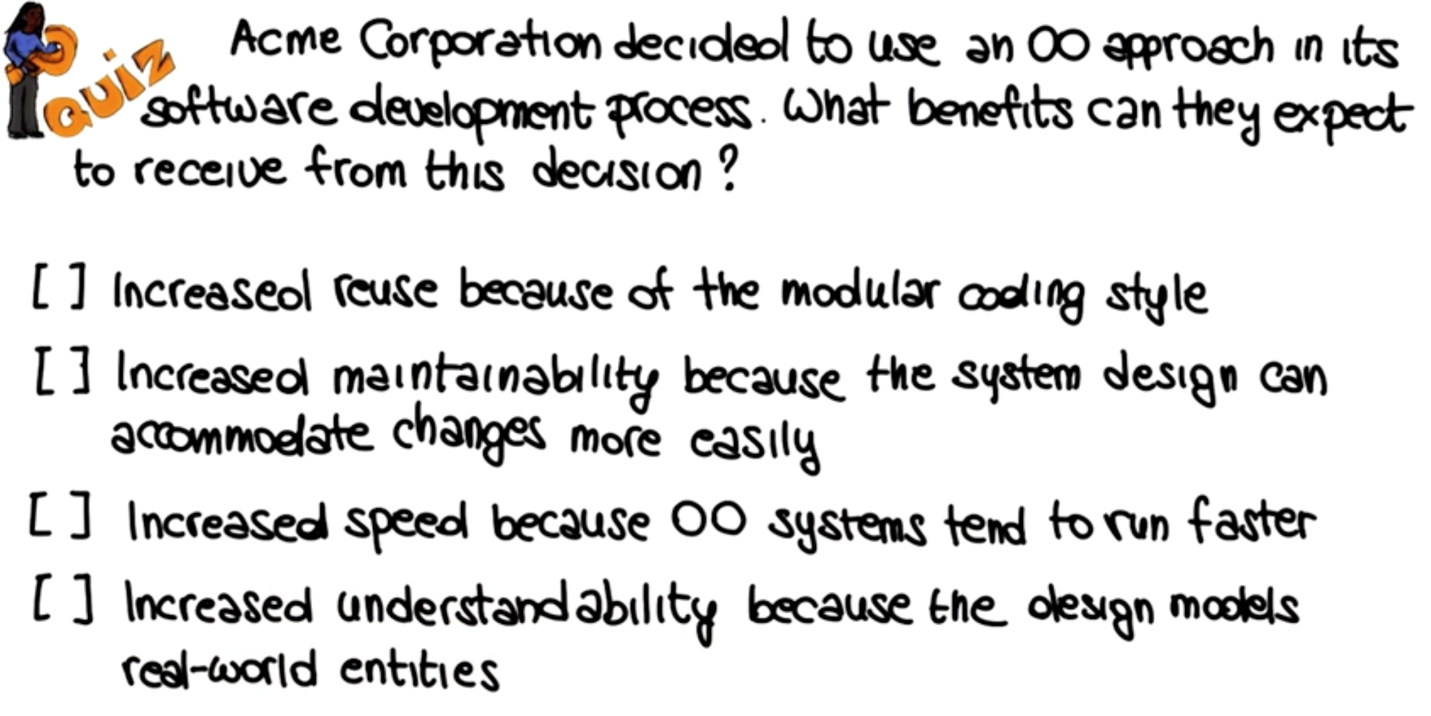 QUIZ
Acme Corporation decided to use an OO approach in its
software development process. What benefits can they expect
to receive from this decision?
[ ] Increased reuse because of the modular coding style
[ ] Increased maintainability because the system design can
accommodate changes more easily
[ ] Increased speed because OO systems tend to run faster
[ ] Increased understandability because the design models
real-world entities